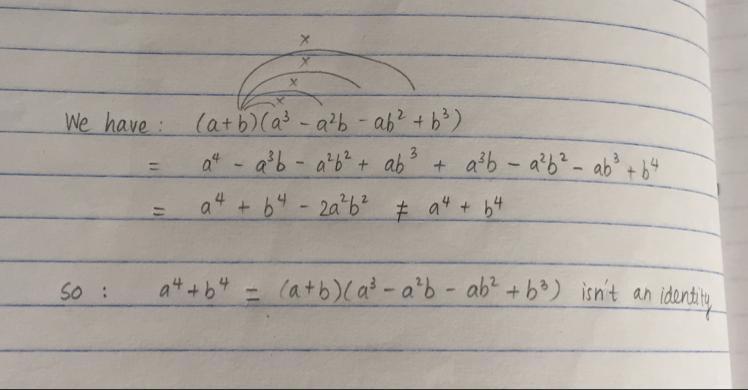 × 
×
×
×
We have : (a+b)(a³ - a²b - ab² + b³)
= a⁴ - a³b - a²b² + ab³ + a³b - a²b² - ab³ + b⁴
= a⁴ + b⁴ - 2a²b² ≠ a⁴ + b⁴
So : a⁴+b⁴ = (a+b)(a³ - a²b - ab² + b³) isn't an identity